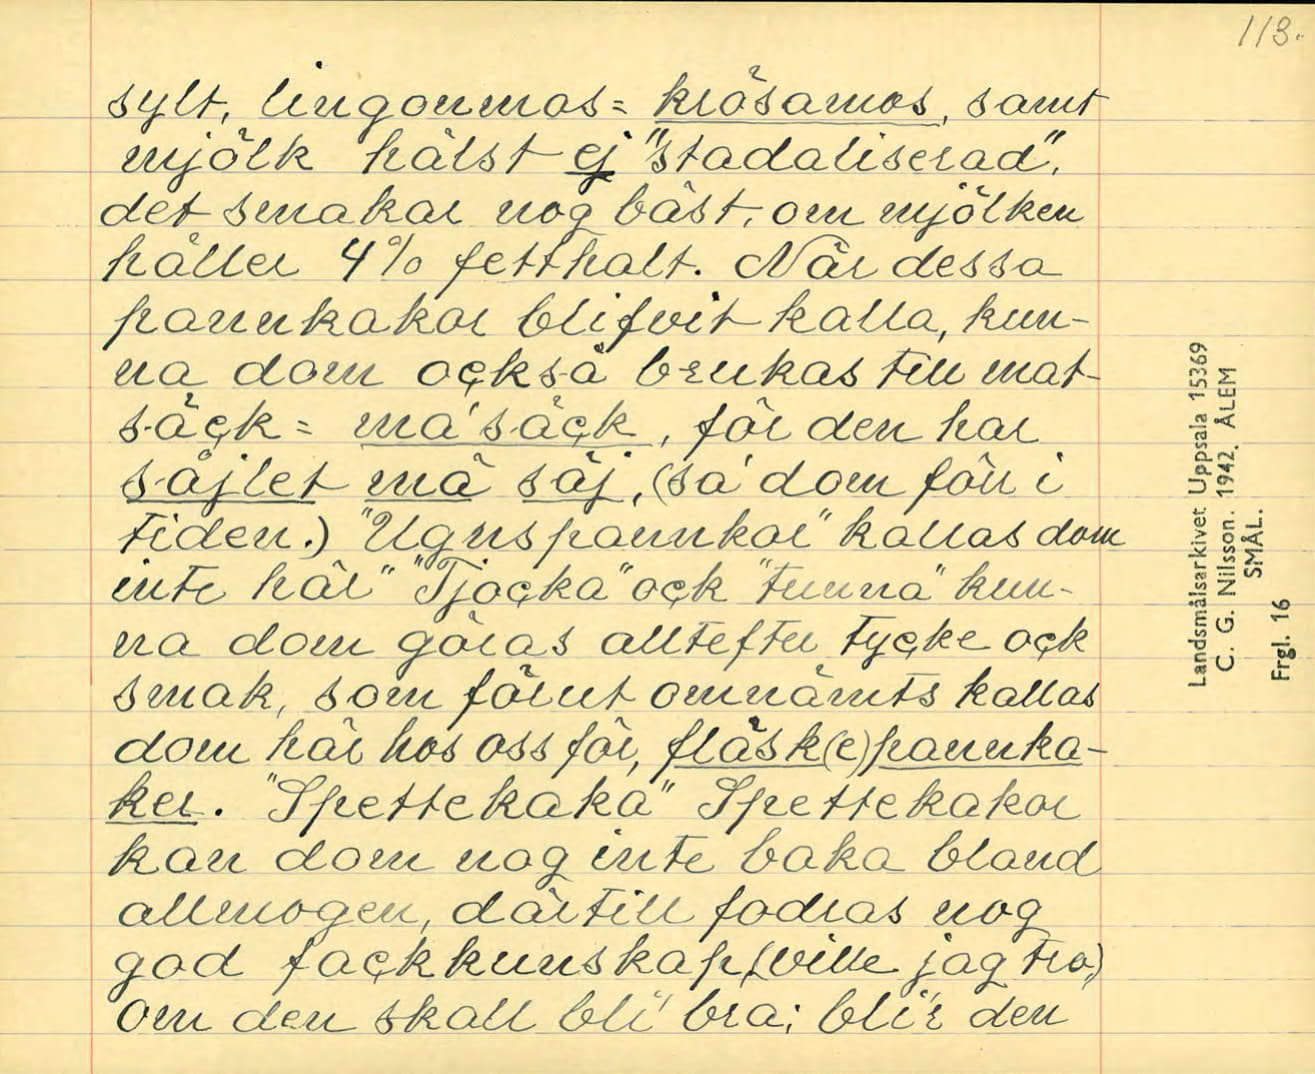 113.
sylt, lingonmos = krösamos, samt
mjölk hälst ej "stadaliserad",
det smakar nog bäst, om mjölken
håller 4% fetthalt. När dessa
pannkakor blifvit kalla, kun-
na dom också brukas till mat-
säck = ma'säck, för den har
såjlet mä säj, (sa' dom förr i
tiden.) "Ugnspannkar" kallas dom
inte här" "Tjocka" ock "tunna" kun-
na dom göras alltefter tycke ock
smak, som förut omnämts kallas
dom här hos oss för, fläsk(e)pannka-
ker. "Spettekaka" Spettekakor
kan dom nog inte baka bland
allmogen, därtill fodras nog
god fackkunskap, (ville jag tro,)
om den skall bli' bra; bli'r den
Landsmålsarkivet Uppsala 15369
C. G. Nilsson. 1942. ÅLEM
SMÅL.
Frgl. 16